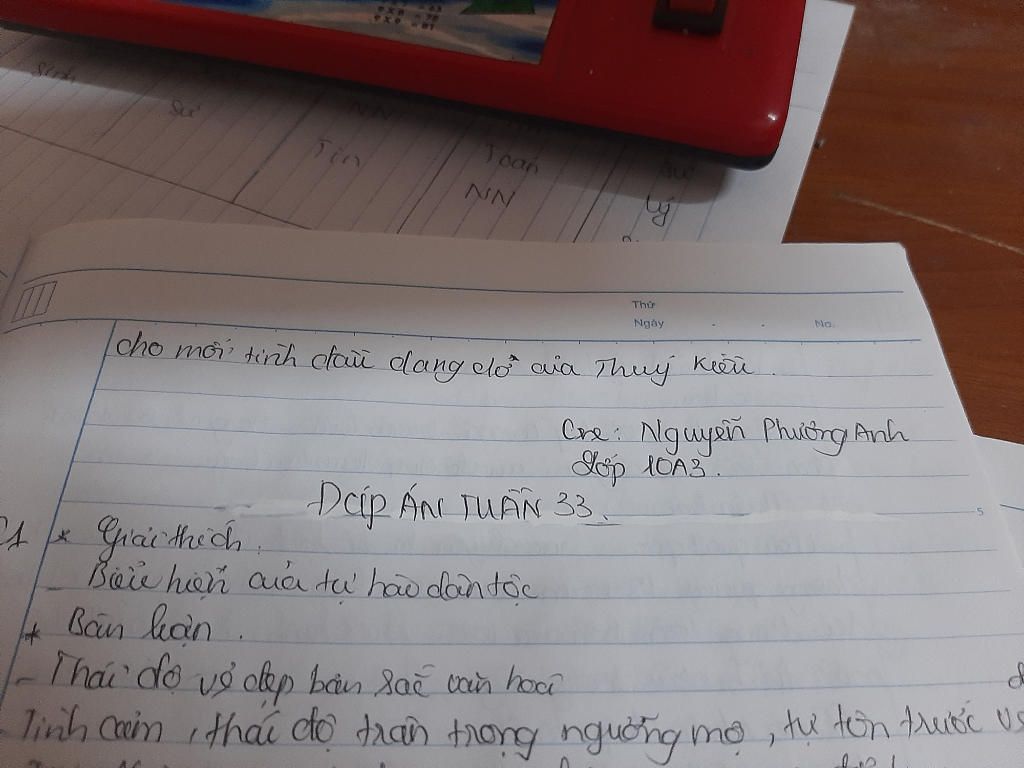 = 63
9 x 8 = 72
9 x 9 = 81
Sinh
Sử
NN
Tin
Toán
NN
Lý
Thứ
Ngày . . No.
cho mối tình đầu dang dở của Thuý Kiều.
Cre: Nguyễn Phương Anh
Lớp 10A3.
ĐÁP ÁN TUẦN 33.
C1 * Giải thích.
- Biểu hiện của tự hào dân tộc
* Bàn luận.
- Thái độ vẻ đẹp bản sắc văn hoá
Tình cảm, thái độ trân trọng ngưỡng mộ, tự tôn trước